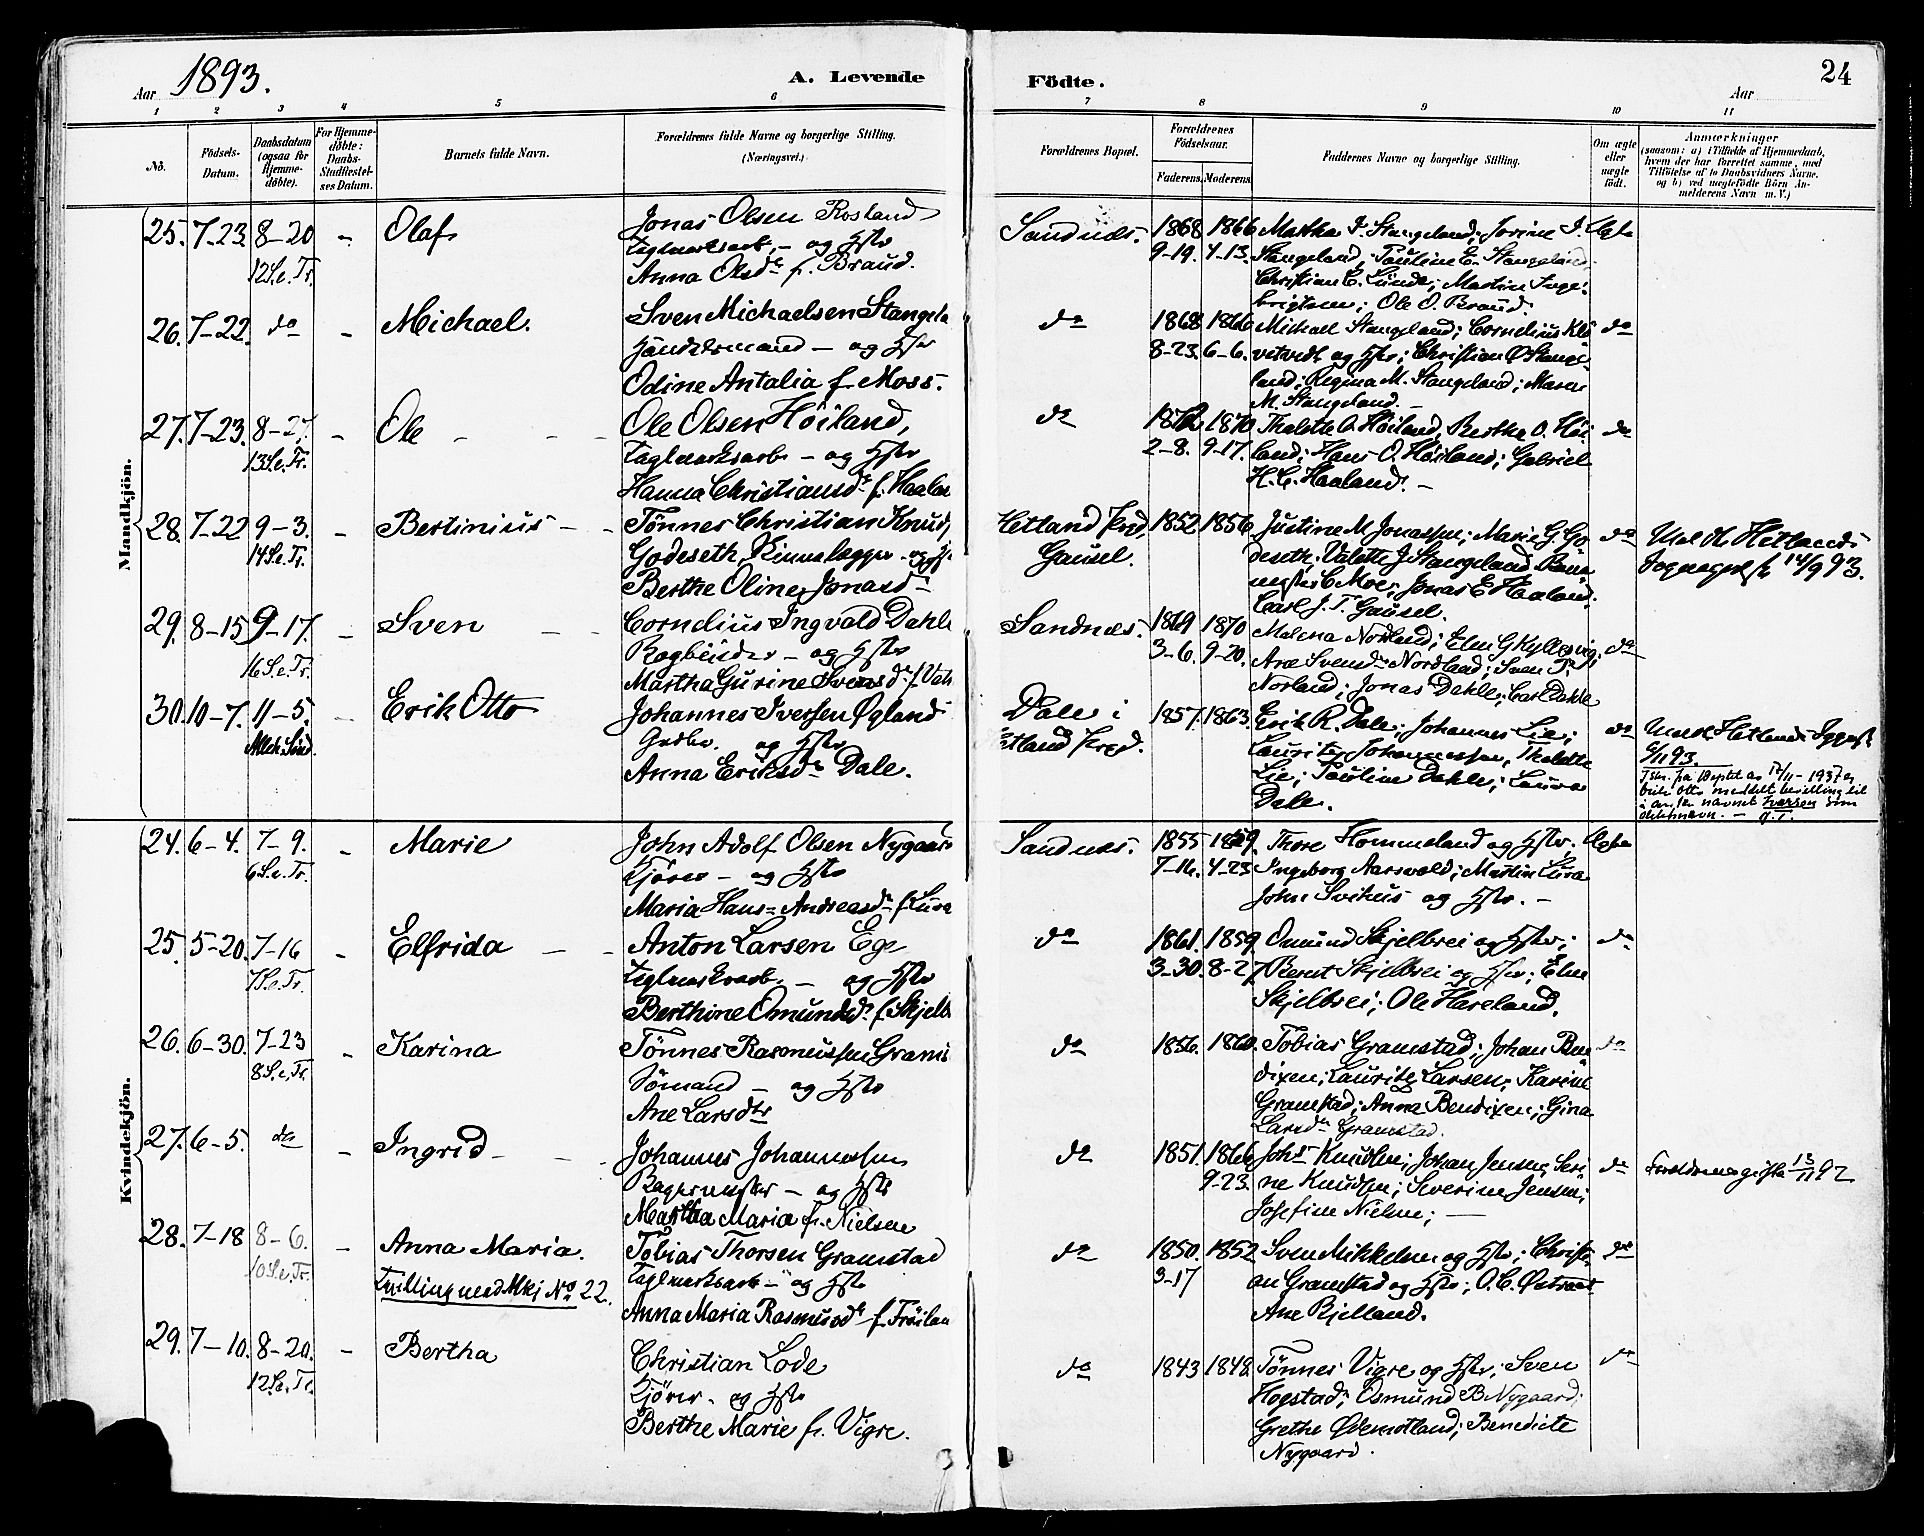 Aar 1893.
A. Levende
Födte.
24
Aar
1 2 3 4 5 6
7 8 9 10 11
No.
Födsels-Datum.
Daabsdatum (ogsaa for Hjemme-döbte).
For Hjemme-döbte: Daabs-Stadfæstel-ses Datum.
Barnets fulde Navn.
Forældrenes fulde Navne og borgerlige Stilling. (Næringsvei.)
Forældrenes Bopæl.
Forældrenes Födselsaar.
Faderens. Moderens.
Faddernes Navne og borgerlige Stilling.
Om ægte eller uægte födt.
Anmærkninger
(saasom: a) i Tilfælde af Hjemmedaab, hvem der har forrettet samme, med Tilföielse af to Daabsvidners Navne. og b) ved uægtefödte Börn An-melderens Navn m. V.)
Mandkjön.
25. 7-23. 8-20 - Olaf
12 S.e.Tr.
Jonas Olsen Rosland
Teglverksarb. - og Hstr
Anna Olsdr f. Braud.
Sandnes. 1868 1866
9-19. 4-13.
Martha T. Stangeland; Jorine T. Ægte
Stangeland; Pauline E. Stangeland;
Christian C. Lunde; Martin Inge-
brigtsen; Ole O. Braud.
26. 7-22. do - Michael.
Sven Michaelsen Stangela
Handelsmand - og Hstr
Odine Antalia f. Moss.
do 1868 1866
8-23. 6-6.
Michael Stangeland; Cornelius Klö do
vetvedt og Hstr; Christian Stange-
land; Regina M. Stangeland; Maren
M. Stangeland. -
27. 7-23. 8-27. - Ole
13 S.e.Tr.
Ole Olsen Höiland,
Teglverksarb - og Hstr
Hanna Christiansdr f. Haalan
do 1872 1870
2-8. 9-17.
Thalette O. Höiland, Berthe O. Höi do
land; Hans O. Höiland; Gabriel
H. C. Haaland. -
28. 7-22 9-3. - Bertinius
14 S.e.Tr.
Tönnes Christian Knuds
Godeseth, Kirmalægger - og Hs
Berthe Oline Jonasdr
Hetland Præg,
Gausel.
1852 1856
Justine M. Jonassen; Marie G. Go do
deseth; Valette J. Stangeland
C. Moe; Jonas E. Haaland;
Carl J. T. Gausel.
Meldt Hetlands
Sognepræst 14/9 93.
29. 8-15 9-17. - Sven
16 S.e.Tr.
Cornelius Ingvald Dahle
Bogbinder - og Hstr
Martha Gurine Svensdr f. Vat
Sandnes. 1869 1870
3-6. 9-20.
Malena Nordland; Elen G. Kyllesvig; do
Ane Svensdr Nordland; Sven T.
Norland; Jonas Dahle; Carl Dahle
30. 10-7. 11-5. - Erik Otto
Alleh. Sönd.
Johannes Iversen Øgland
Grdbr. og Hstr
Anna Eriksdr Dale.
Dale i
Hetland Præg.
1857. 1863.
Erik R. Dale; Johannes Lie; do
Lauritz Johannessen, Thalette
Lie; Pauline Dahle; Laura
Dale.
Meldt Hetlands Sognepr
6/11 93.
11-1937 er
Erik Otto meddelt bevilling til
navnet Iversen som
slektsnavn. -
Kvindekjön.
24. 6-4. 7-9. - Marie
6 S.e.Tr.
John Adolf Olsen Nygaard
Kjörer - og Hstr
Maria Hans-Andreasdr f. Lura
Sandnes. 1855 1859.
7-16. 4-23
Thore Hommeland og Hstr. Ægte
Ingeborg Aarsvold; Martin Lura
John Svihus og Hstr. -
25. 5-20. 7-16 - Elfrida
7 S.e.Tr.
Anton Larsen Ege
Teglverksarb. - og Hstr
Berthine Omundsdr f. Skjelb
do 1861. 1859
3-30. 8-27
Omund Skjelbrei og Hstr; do
Bernt Skjelbrei og Hstr; Elen
Skjelbrei; Ole Hareland.
26. 6-30. 7-23 - Karina
8 S.e.Tr.
Tönnes Rasmussen Grams
Sömand - og Hstr
Ane Larsdtr
do 1856. 1860.
Tobias Gramstad; Johan Ben do
dixen; Lauritz Larsen; Karine
Gramstad; Anna Bendixen; Gina
Larsdr Gramstad.
27. 6-5. do - Ingrid
Johannes Johannessen
Bagermester - og Hstr
Martha Maria f. Nielsen
do 1851. 1866
9-23.
Johs Knudsen; Johan Jensen; Seri do
ne Knudsen; Severine Jensen;
Josefine Nielsen; -
Forældrene gifte 13/11 92
28. 7-18 8-6. - Anna Maria.
10 S.e.Tr. Tvilling med Mkj No 22.
Tobias Thorsen Gramstad
Teglverksarb - og Hstr
Anna Maria Rasmusdr f. Fröilan
do 1850. 1852
3-17
Sven Mikkelsen og Hstr; Christi do
an Gramstad og Hstr; O. C. Østraat
Ane Kjelland.
29. 7-10. 8-20. - Bertha
12 S.e.Tr.
Christian Lode
Kjörer. og Hstr
Berthe Marie f. Vigre.
do 1843 1848
Tönnes Vigre og Hstr; Sven do
Hogstad; Osmund B. Nygaard;
Grethe Ødemotland; Benedicte
Nygaard.